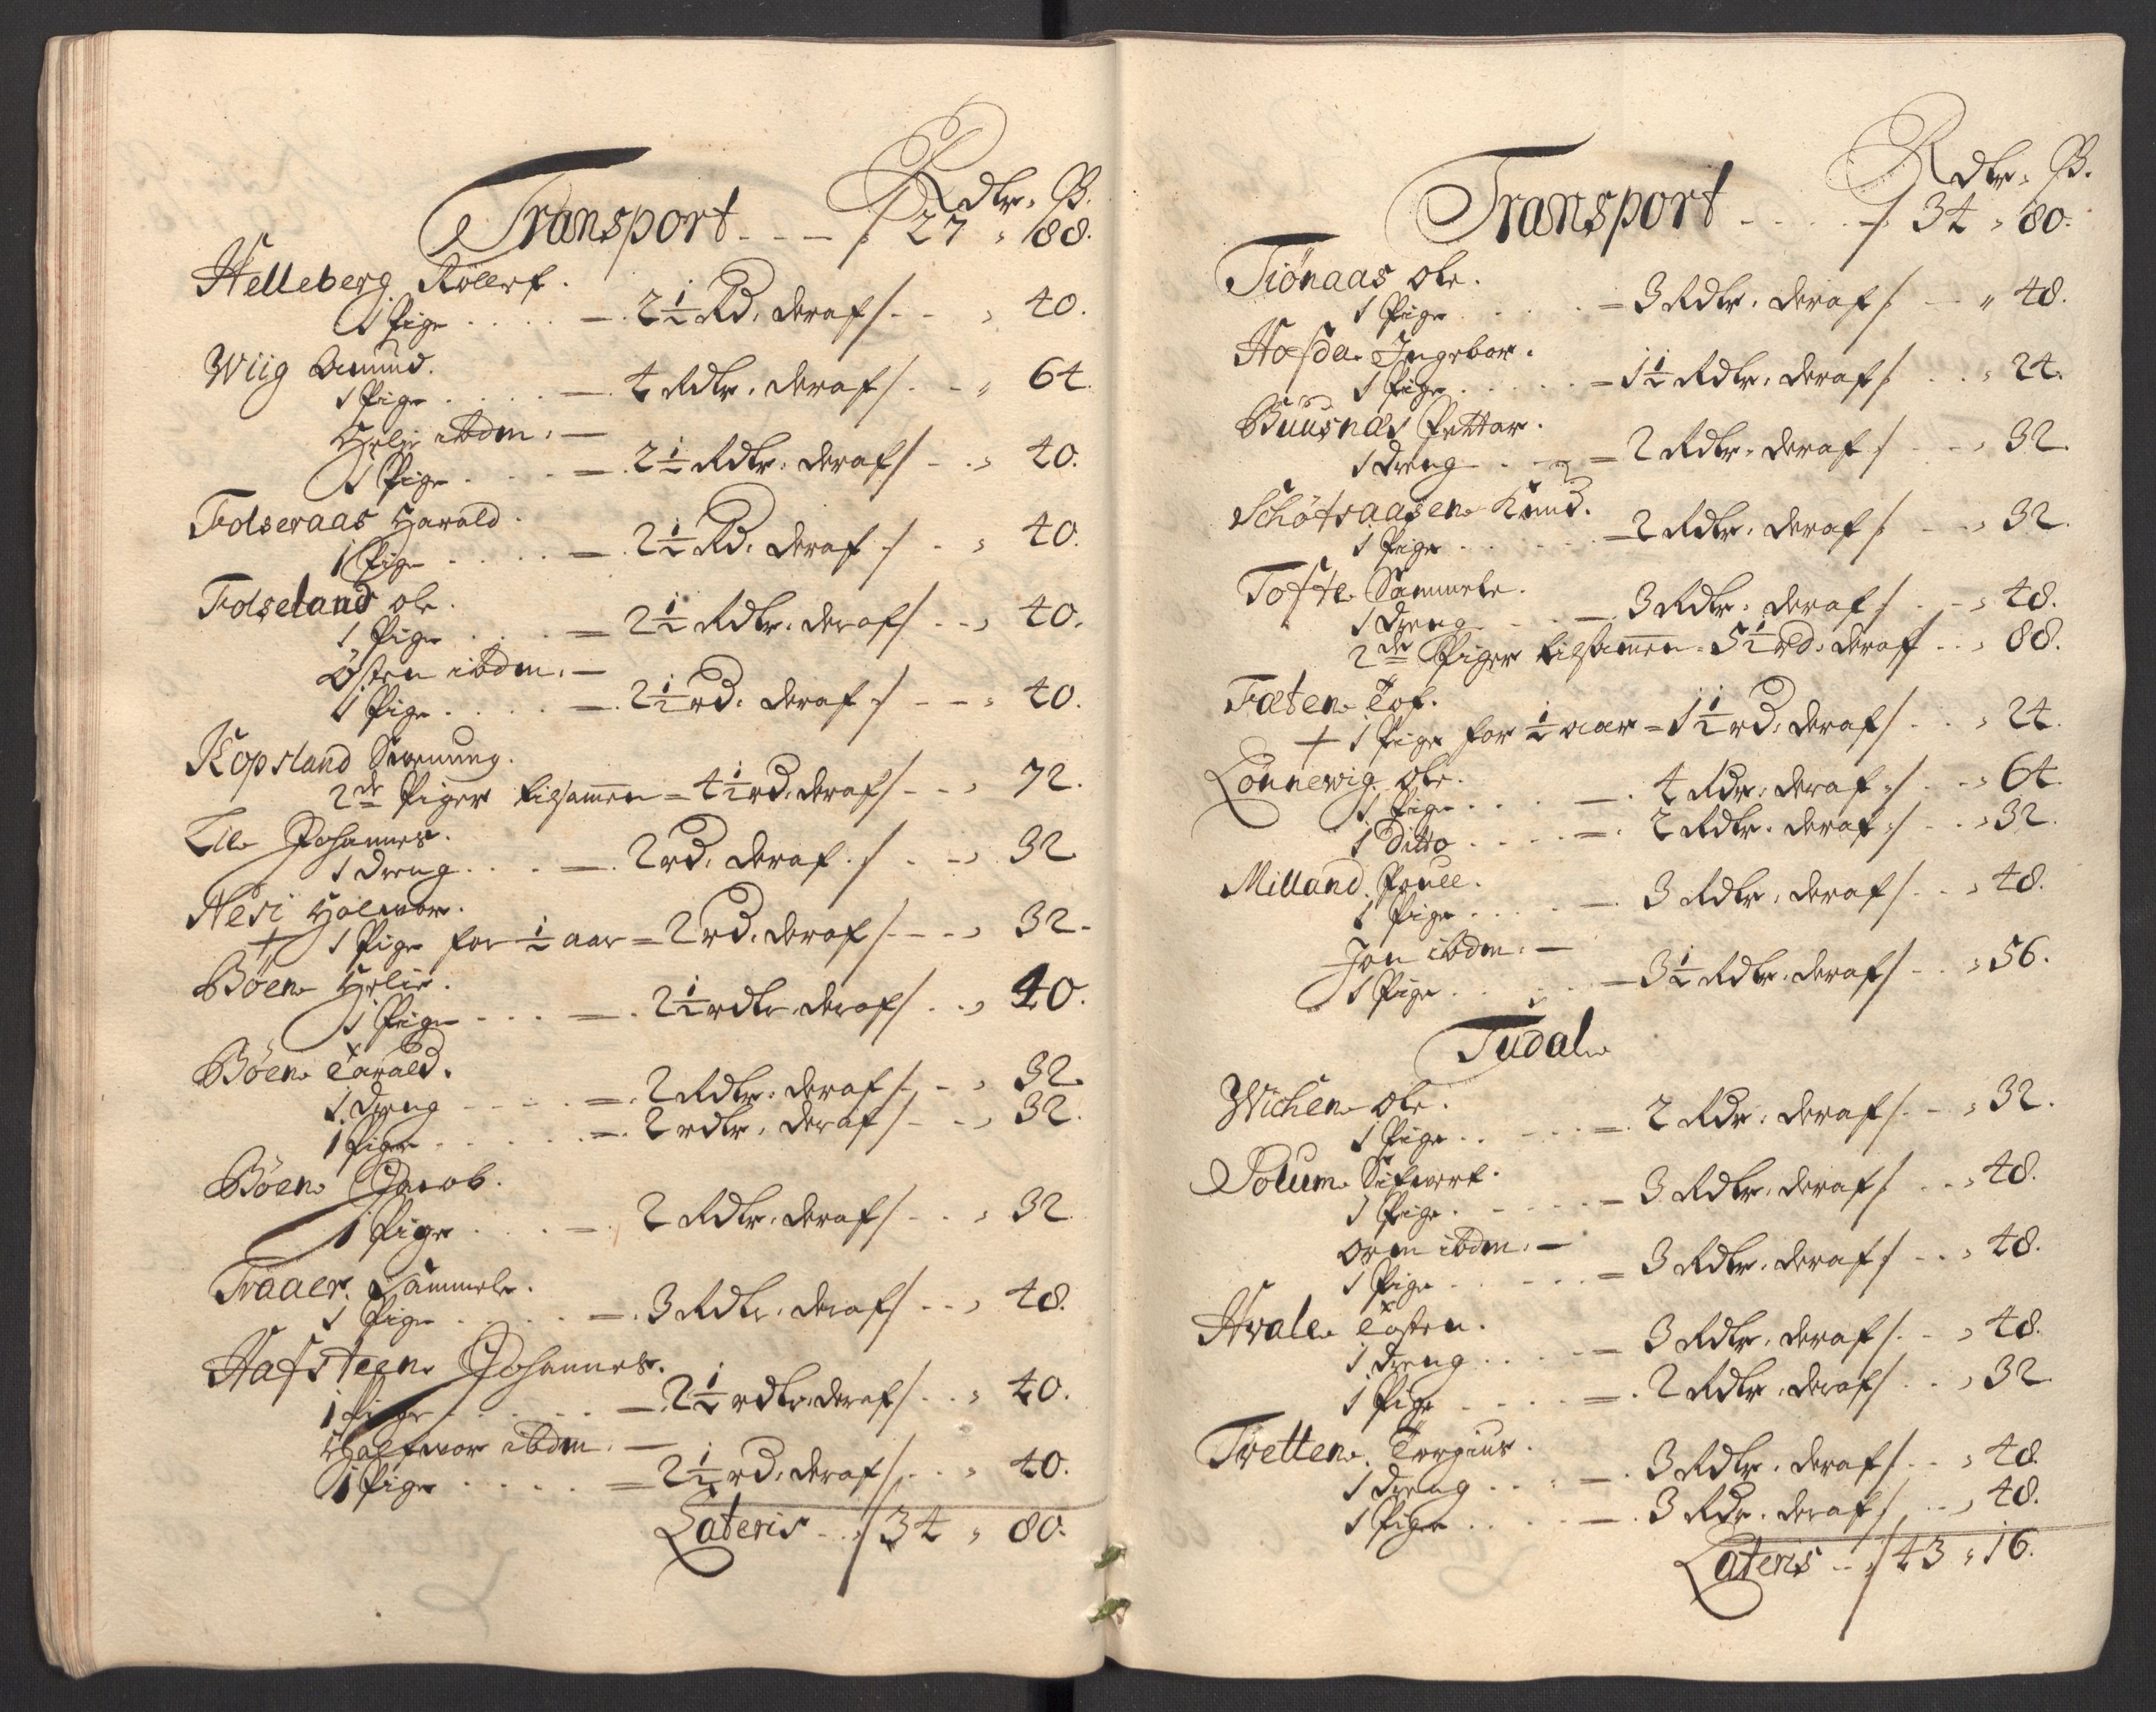 Rdlr. ß.
Transport - - - 27 " 88.
Helleberg Rollef.
1 Pige . . . . — 2½ Rd. deraf - - " 40.
Wiig Amund.
1 Pige . . . . — 4 Rdlr. deraf - - " 64.
Helje ibdm. —
1 Pige . . . . — 2½ Rdlr. deraf - - " 40.
Folseraas Harald.
1 Pige . . . . — 2½ Rd. deraf - - " 40.
Folseland Ole.
1 Pige . . . . = 2½ Rdlr. deraf - - " 40.
Østen ibdm. —
1 Pige . . . . — 2½ rd. deraf - - " 40.
Kopsland Swenung.
2de Piger tilsamen = 4½ rd. deraf - - " 72.
Lie Johannes.
1 dreng . . . — 2 rd. deraf - - " 32.
Nesi Halwor.
+ 1 Pige for ½ aar = 2 rd. deraf - - " 32.
Böen Helje.
1 Pige - - - = 2½ rdlr deraf - - " 40.
Böen Tarald.
1 dreng - - - = 2 Rdlr. deraf - - " 32.
1 Pige . . . . = 2 rdlr. deraf - - " 32.
Böen Jacob.
1 Pige . . . . — 2 Rdlr. deraf - - " 32.
Traaer Sammele.
1 Pige . . . . = 3 Rdlr. deraf - - " 48.
Hafsteen Johannes.
1 Pige . . . . — 2½ rdlr. deraf - - " 40.
Halfwor ibdm. —
1 Pige . . . . = 2½ rd. deraf - - " 40.
Lateris - - 34 " 80.
Rdlr. ß.
Transport - - - 34 " 80.
Tiönaas Ole.
1 Pige . . . . = 3 Rdlr. deraf - - " 48.
Hofda Ingebor.
1 Pige . . . . = 1½ Rdlr. deraf - - " 24.
Buusnæs Pettar.
1 dreng . . . = 2 Rdlr. deraf - - " 32.
Schötraasen Knud.
1 Pige . . . . = 2 Rdlr. deraf - - " 32.
Tofte Sammele.
1 dreng - - — 3 Rdlr. deraf - - " 48.
2de Piger tilsamen = 5½ rd. deraf - - " 88.
Faten Tof.
+ 1 Pige for ½ aar = 1½ rd. deraf - - " 24.
Lonnewig Ole.
1 Pige . . . — 4 Rdr. deraf - - " 64.
1 Ditto . . . = 2 Rdlr. deraf - - " 32.
Milland Pouell.
1 Pige . . . — 3 Rdlr. deraf - - " 48.
Jon ibdm. —
1 Pige . . . — 3½ Rdlr. deraf - - " 56.
Tudal
Wichen Ole.
1 Pige . . . = 2 Rdr. deraf - - " 32.
Bolum Sifwert.
1 Pige . . . = 3 Rdlr. deraf - - " 48.
Orm ibdm. —
1 Pige . . . = 3 Rdlr. deraf - - " 48.
Hvale Tosten.
1 dreng . . . — 3 Rdlr. deraf - - " 48.
1 Pige . . . = 2 Rdlr. deraf - - " 32.
Tvetten Torgius.
1 dreng . . . — 3 Rdlr. deraf - - " 48.
1 Pige . . . — 3 Rdr. deraf - - " 48.
Lateris - - 43 " 16.